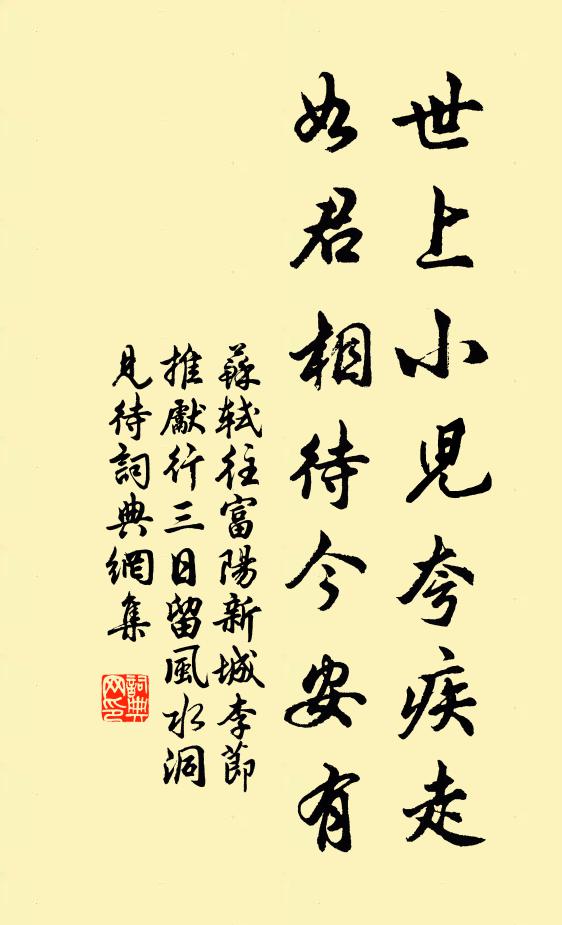 世上小兒夸疾走
如君相待今安有
蘇軾往富陽新城李節
推獻行三日留風水洞
見待詞典網集
詞典網印